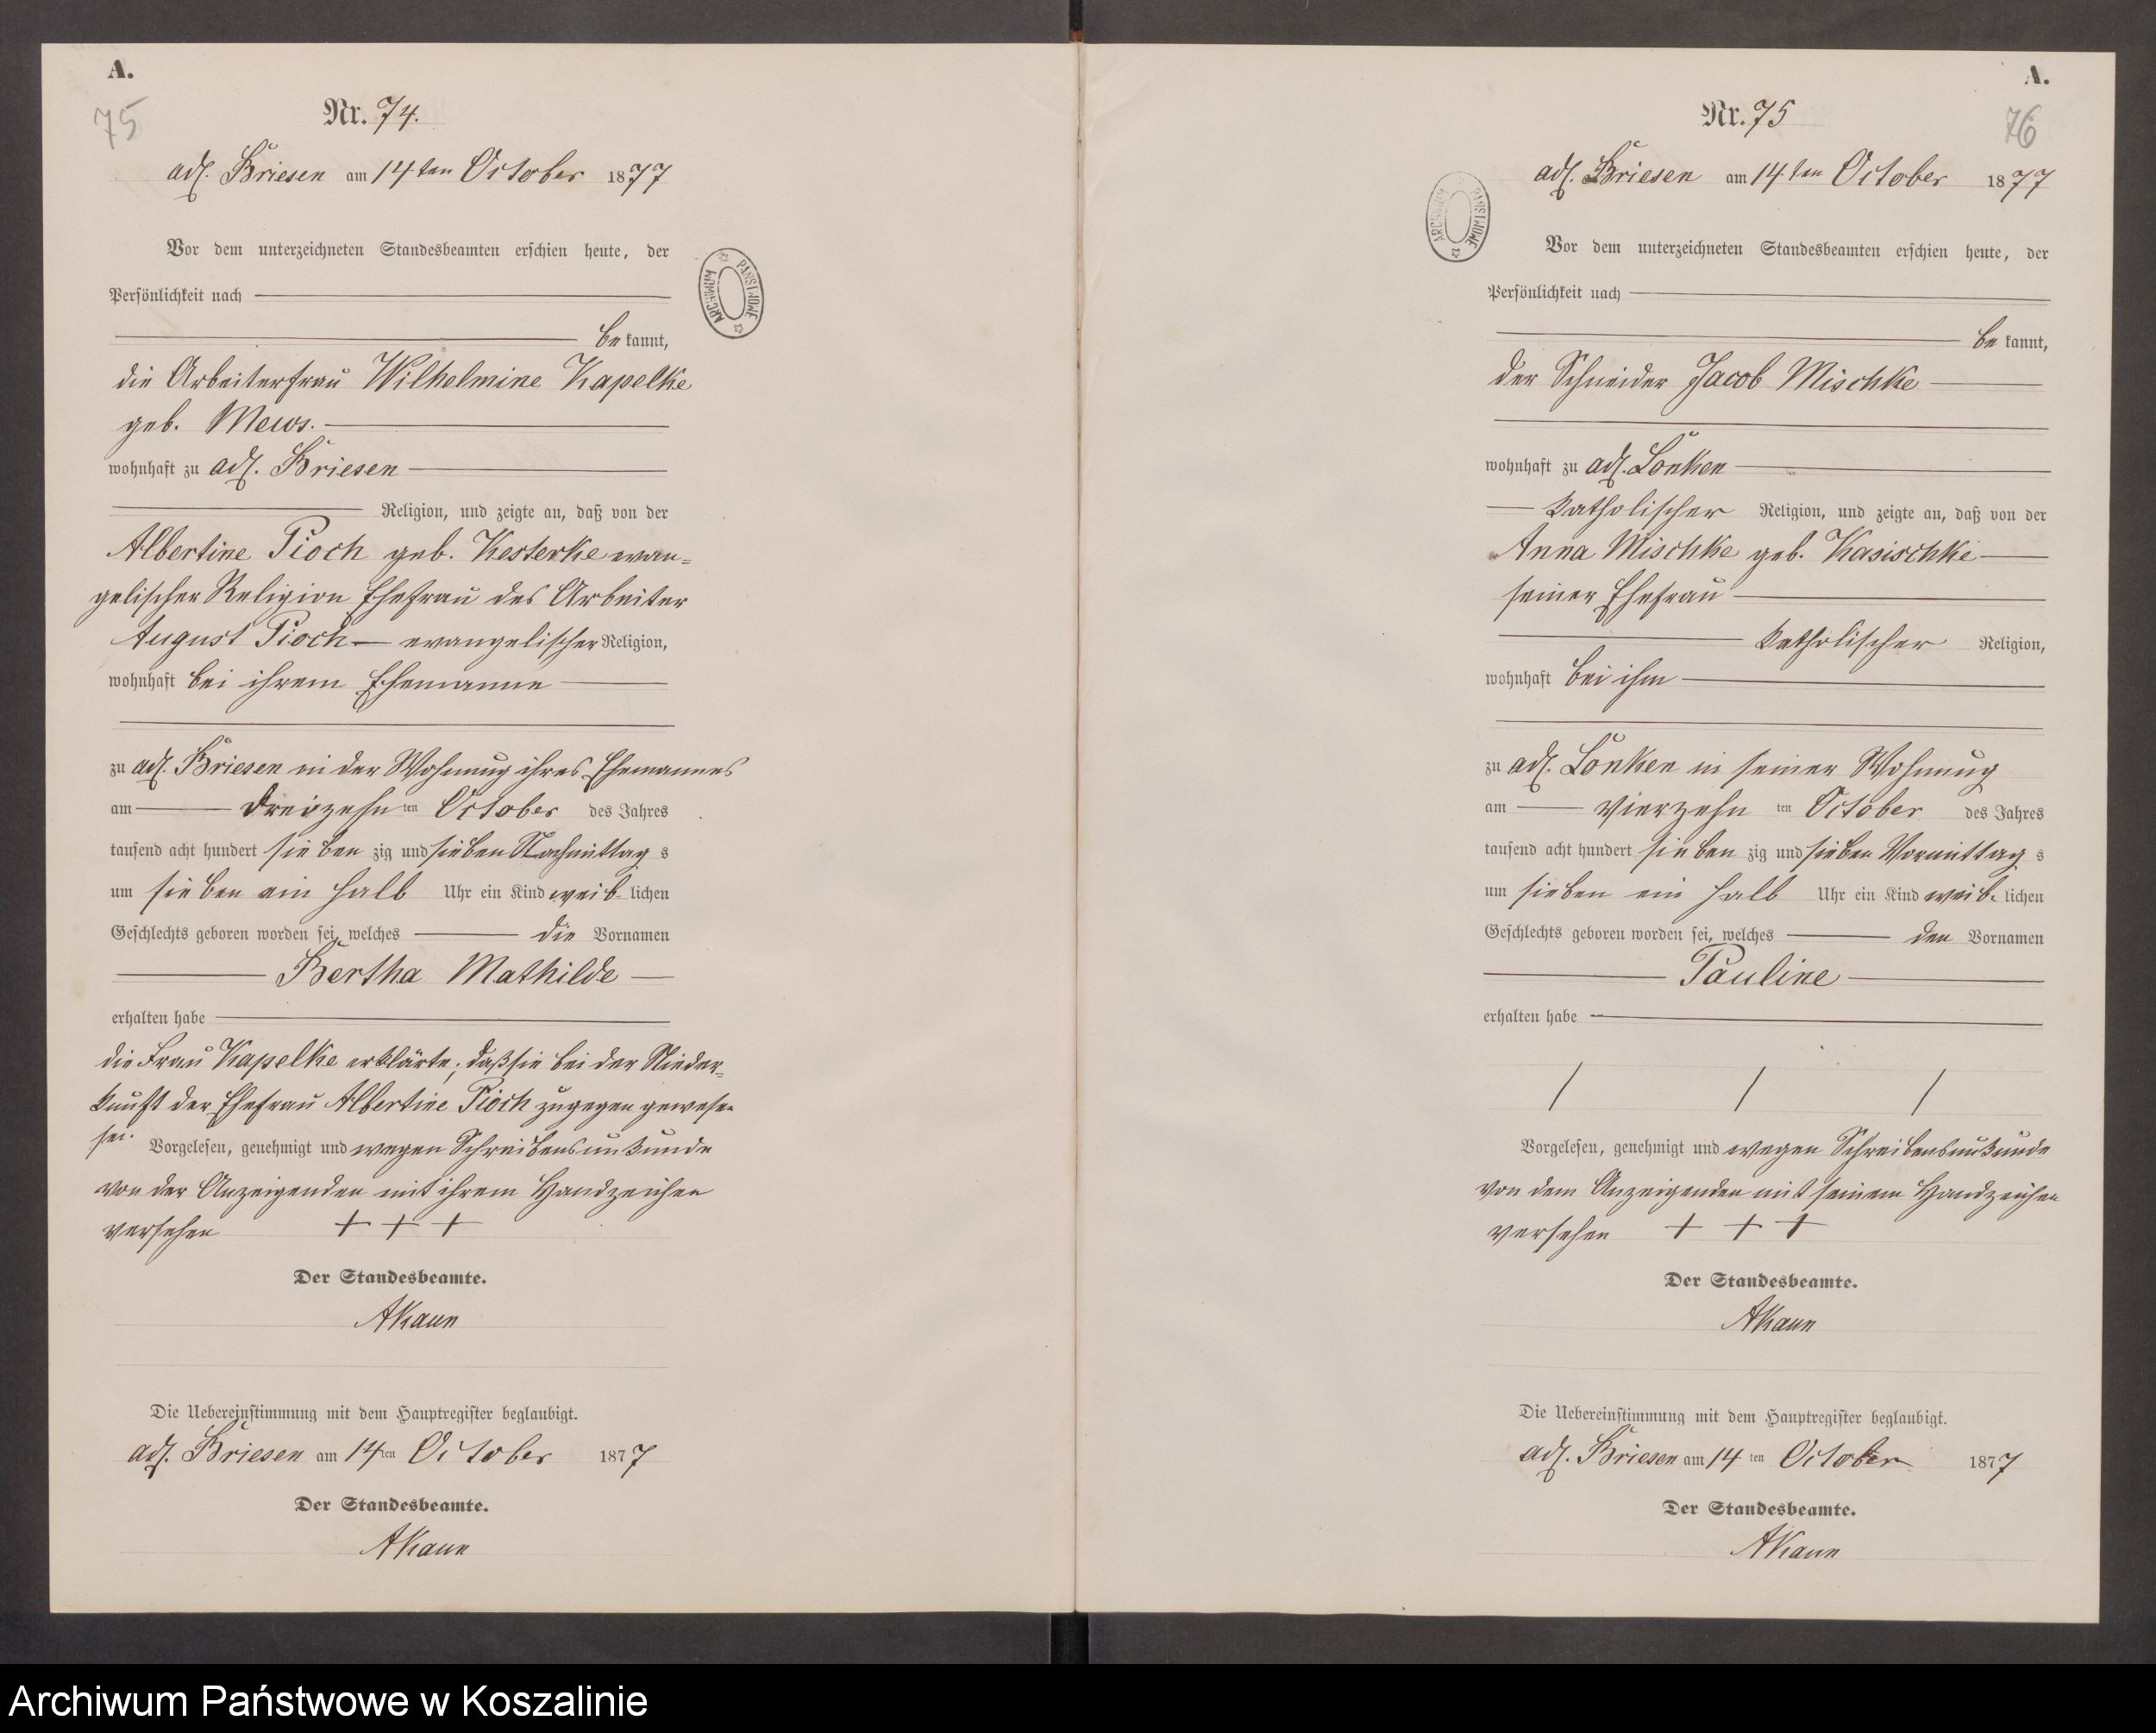 A.
75
Nr. 74.
adl. Briesen am 14ten October 1877
Vor dem unterzeichneten Standesbeamten erschien heute, der
Persönlichkeit nach
be kannt,
die Arbeiterfrau Wilhelmine Kapelke
geb. Mews.
wohnhaft zu adl. Briesen
Religion, und zeigte an, daß von der
Albertine Pioch geb. Kesterke evan=
gelischer Religion Ehefrau des Arbeiter
August Pioch evangelischer Religion,
wohnhaft bei ihrem Ehemanne
zu adl. Briesen in der Wohnung ihres Ehemannes
am dreizehn ten October des Jahres
tausend acht hundert sieben zig und sieben Nachmittag s
um sieben ein halb Uhr ein Kind weib- lichen
Geschlechts geboren worden sei, welches die Vornamen
Bertha Mathilde
erhalten habe
die Frau Kapelke erklärte, daß sie bei der Nieder=
kunft der Ehefrau Albertine Pioch zugegen gewesen
sei. Vorgelesen, genehmigt und wegen Schreibensunkunde
von der Anzeigenden mit ihrem Handzeichen
versehen + + +
Der Standesbeamte.
AKaun
Die Uebereinstimmung mit dem Hauptregister beglaubigt.
adl. Briesen am 14ten October 1877
Der Standesbeamte.
AKaun
ARCHIWUM PAŃSTWOWE
A.
76
Nr. 75
adl. Briesen am 14ten October 1877
ARCHIWUM PAŃSTWOWE
Vor dem unterzeichneten Standesbeamten erschien heute, der
Persönlichkeit nach
be kannt,
der Schneider Jacob Mischke
wohnhaft zu adl. Lonken
katholischer Religion, und zeigte an, daß von der
Anna Mischke geb. Kasischke
seiner Ehefrau
katholischer Religion,
wohnhaft bei ihm
zu adl. Lonken in seiner Wohnung
am vierzehn ten October des Jahres
tausend acht hundert sieben zig und sieben Vormittag s
um sieben ein halb Uhr ein Kind weib- lichen
Geschlechts geboren worden sei, welches den Vornamen
Pauline
erhalten habe
/ / /
Vorgelesen, genehmigt und wegen Schreibensunkunde
von dem Anzeigenden mit seinem Handzeichen
versehen + + +
Der Standesbeamte.
AKaun
Die Uebereinstimmung mit dem Hauptregister beglaubigt.
adl. Briesen am 14 ten October 1877
Der Standesbeamte.
AKaun
Archiwum Państwowe w Koszalinie